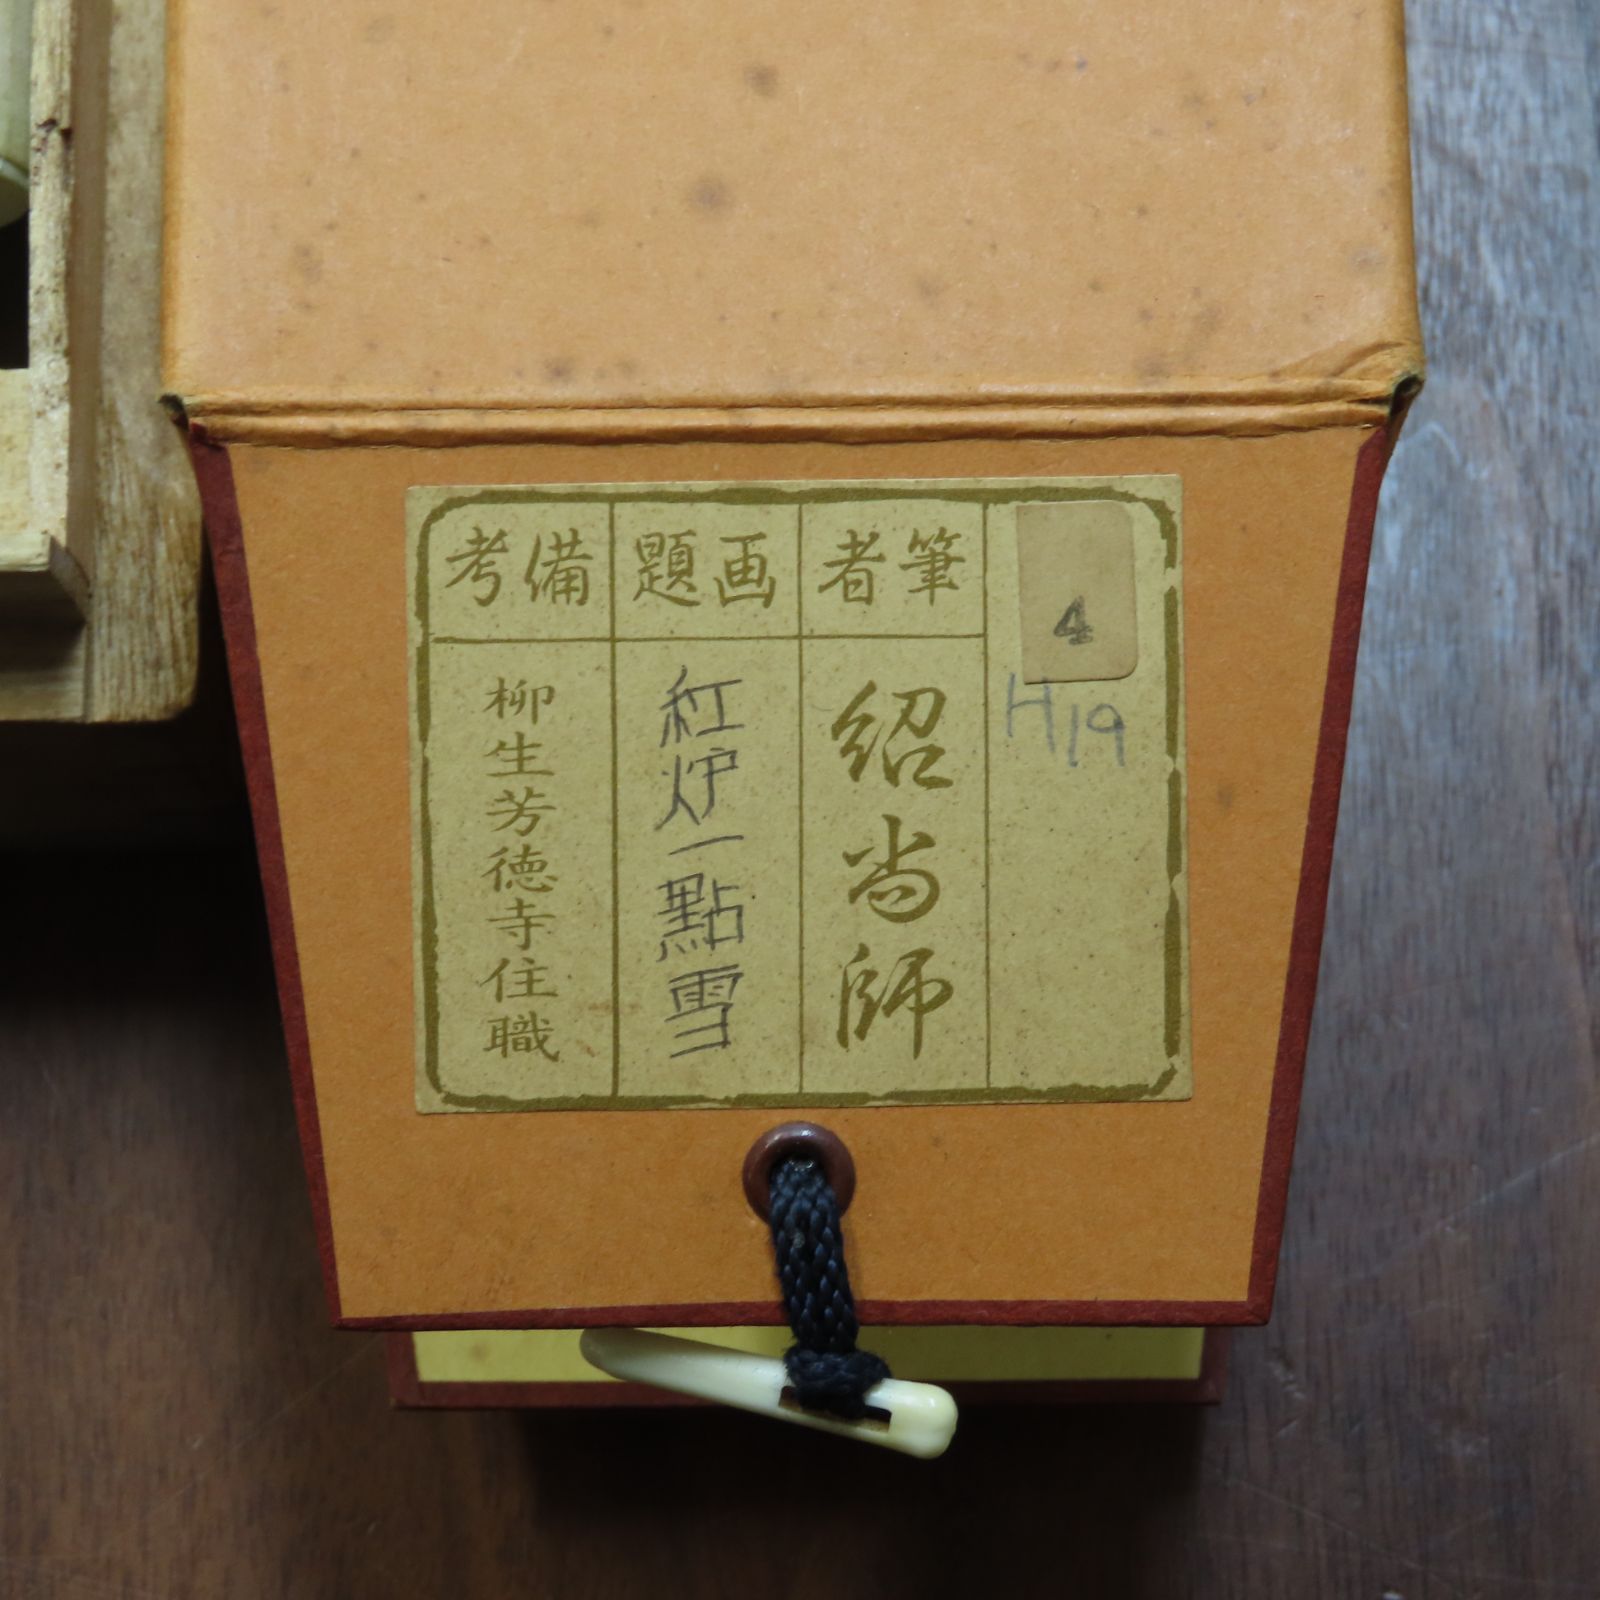 4
H19
筆者
紹尚師
画題
紅炉一點雪
備考
柳生芳徳寺住職